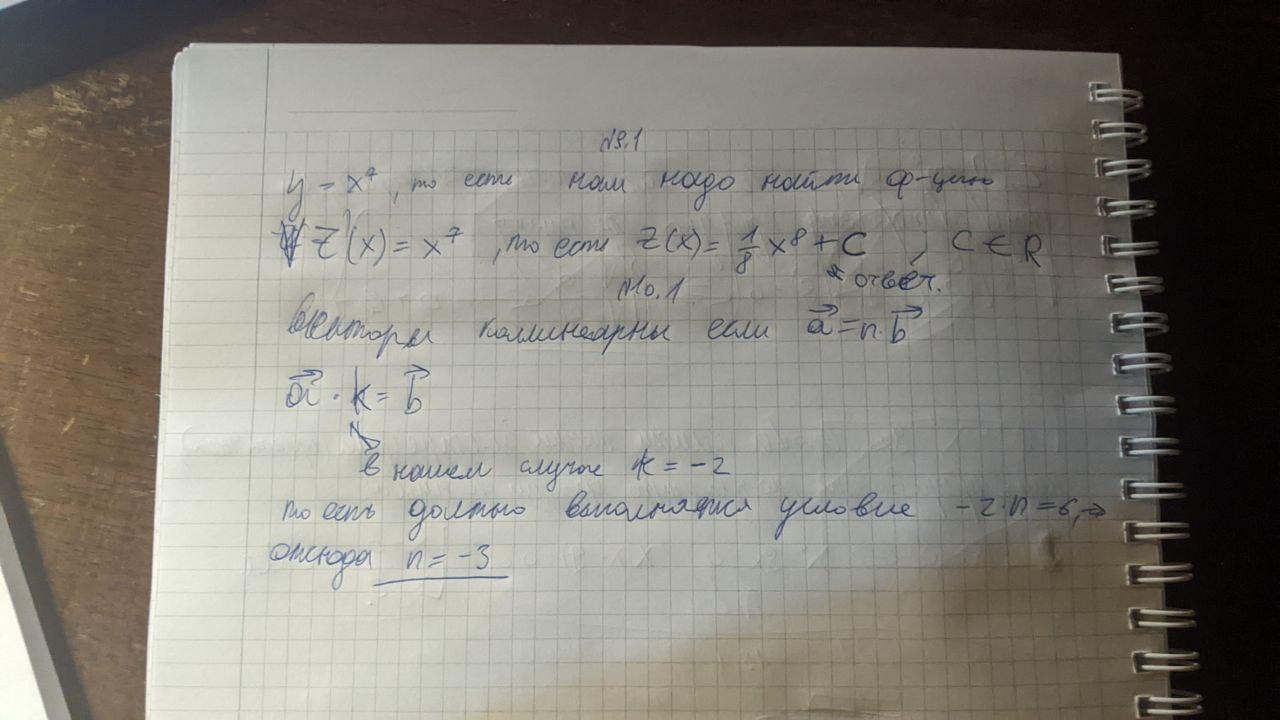 №9.1
y = x⁷, то есть нам надо найти ф-цию
Z'(x) = x⁷, то есть Z(x) = 1/8 x⁸ + C, C ∈ R
* ответ.
№10.1
Векторы колинеарны если a⃗ = n · b⃗
a⃗ · k = b⃗
в нашем случае k = -2
то есть должно выполнятся условие -2·n = 6, →
отсюда n = -3